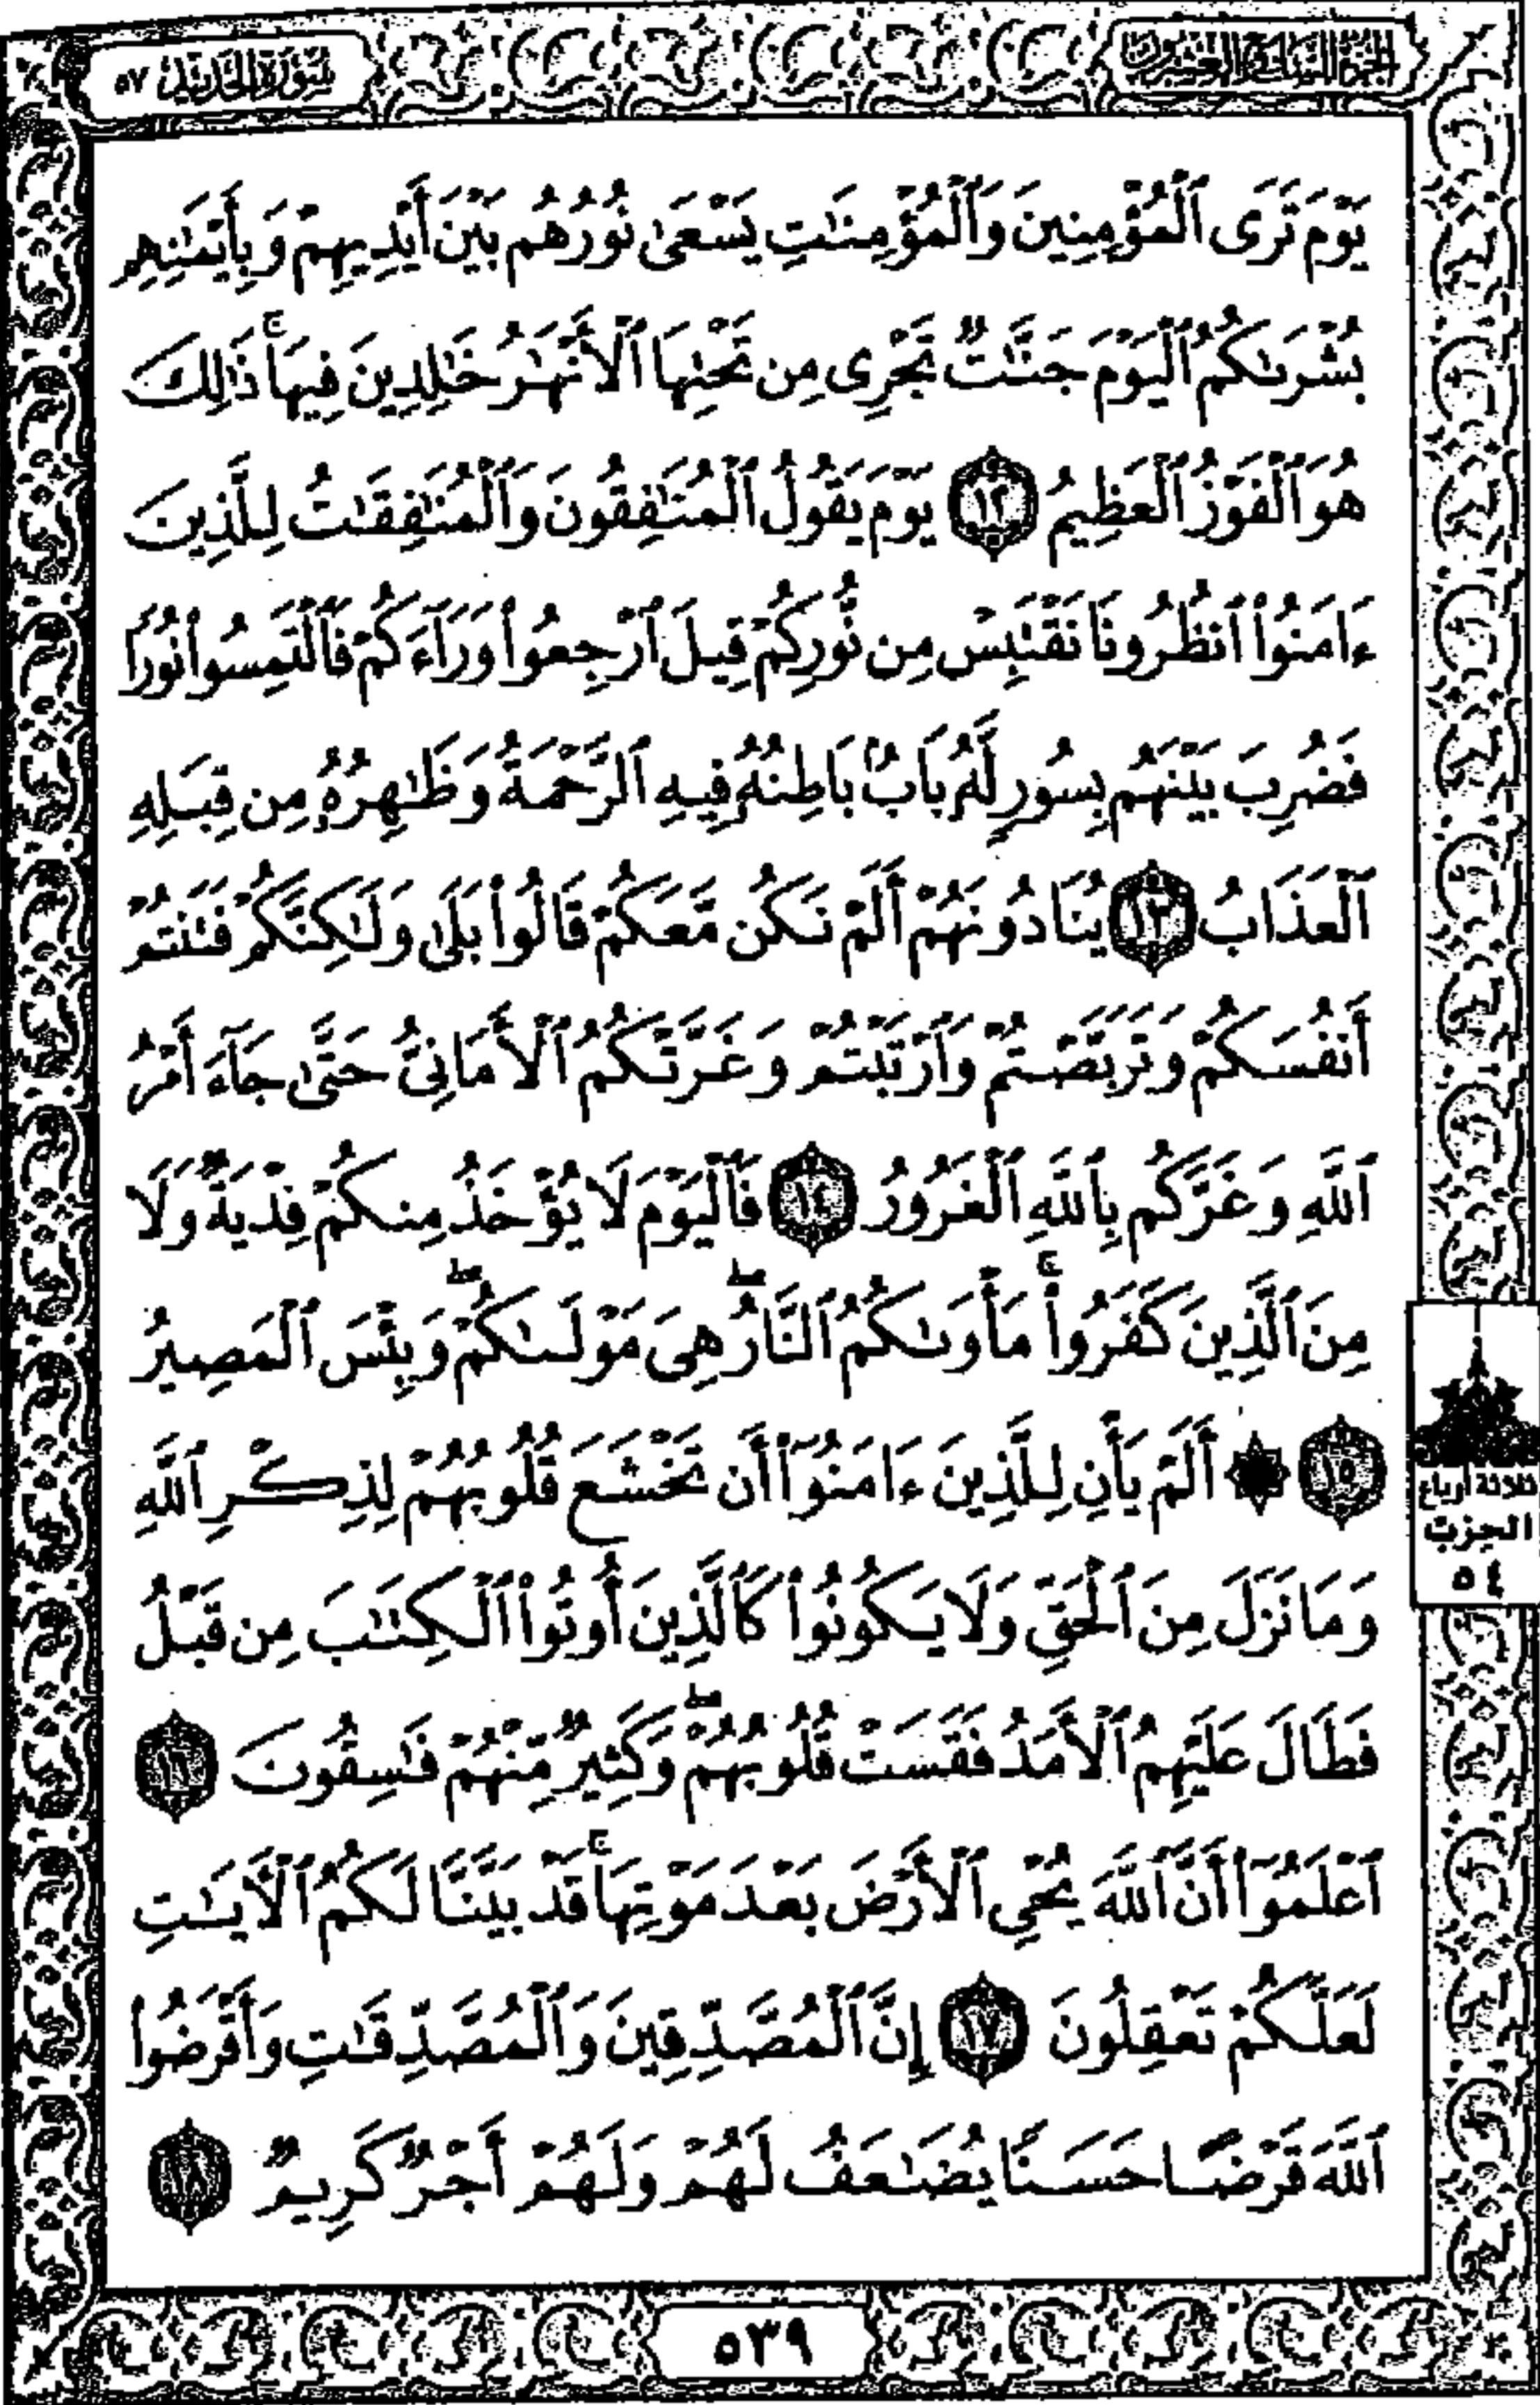 الجزء السابع والعشرون
سورة الحديد ٥٧
يَوْمَ تَرَى ٱلْمُؤْمِنِينَ وَٱلْمُؤْمِنَٰتِ يَسْعَىٰ نُورُهُم بَيْنَ أَيْدِيهِمْ وَبِأَيْمَٰنِهِم
بُشْرَىٰكُمُ ٱلْيَوْمَ جَنَّٰتٌ تَجْرِى مِن تَحْتِهَا ٱلْأَنْهَٰرُ خَٰلِدِينَ فِيهَا ۚ ذَٰلِكَ
هُوَ ٱلْفَوْزُ ٱلْعَظِيمُ ١٢ يَوْمَ يَقُولُ ٱلْمُنَٰفِقُونَ وَٱلْمُنَٰفِقَٰتُ لِلَّذِينَ
ءَامَنُوا۟ ٱنظُرُونَا نَقْتَبِسْ مِن نُّورِكُمْ قِيلَ ٱرْجِعُوا۟ وَرَآءَكُمْ فَٱلْتَمِسُوا۟ نُورًا
فَضُرِبَ بَيْنَهُم بِسُورٍ لَّهُۥ بَابٌۢ بَاطِنُهُۥ فِيهِ ٱلرَّحْمَةُ وَظَٰهِرُهُۥ مِن قِبَلِهِ
ٱلْعَذَابُ ١٣ يُنَادُونَهُمْ أَلَمْ نَكُن مَّعَكُمْ قَالُوا۟ بَلَىٰ وَلَٰكِنَّكُمْ فَتَنتُمْ
أَنفُسَكُمْ وَتَرَبَّصْتُمْ وَٱرْتَبْتُمْ وَغَرَّتْكُمُ ٱلْأَمَانِىُّ حَتَّىٰ جَآءَ أَمْرُ
ٱللَّهِ وَغَرَّكُم بِٱللَّهِ ٱلْغَرُورُ ١٤ فَٱلْيَوْمَ لَا يُؤْخَذُ مِنكُمْ فِدْيَةٌ وَلَا
مِنَ ٱلَّذِينَ كَفَرُوا۟ ۚ مَأْوَىٰكُمُ ٱلنَّارُ ۖ هِىَ مَوْلَىٰكُمْ ۖ وَبِئْسَ ٱلْمَصِيرُ
١٥ ۞ أَلَمْ يَأْنِ لِلَّذِينَ ءَامَنُوٓا۟ أَن تَخْشَعَ قُلُوبُهُمْ لِذِكْرِ ٱللَّهِ
وَمَا نَزَلَ مِنَ ٱلْحَقِّ وَلَا يَكُونُوا۟ كَٱلَّذِينَ أُوتُوا۟ ٱلْكِتَٰبَ مِن قَبْلُ
فَطَالَ عَلَيْهِمُ ٱلْأَمَدُ فَقَسَتْ قُلُوبُهُمْ ۖ وَكَثِيرٌ مِّنْهُمْ فَٰسِقُونَ ١٦
ٱعْلَمُوٓا۟ أَنَّ ٱللَّهَ يُحْىِ ٱلْأَرْضَ بَعْدَ مَوْتِهَا ۚ قَدْ بَيَّنَّا لَكُمُ ٱلْـَٔايَٰتِ
لَعَلَّكُمْ تَعْقِلُونَ ١٧ إِنَّ ٱلْمُصَّدِّقِينَ وَٱلْمُصَّدِّقَٰتِ وَأَقْرَضُوا۟
ٱللَّهَ قَرْضًا حَسَنًا يُضَٰعَفُ لَهُمْ وَلَهُمْ أَجْرٌ كَرِيمٌ ١٨
ثلاثة أرباع
الحزب
٥٤
٥٣٩